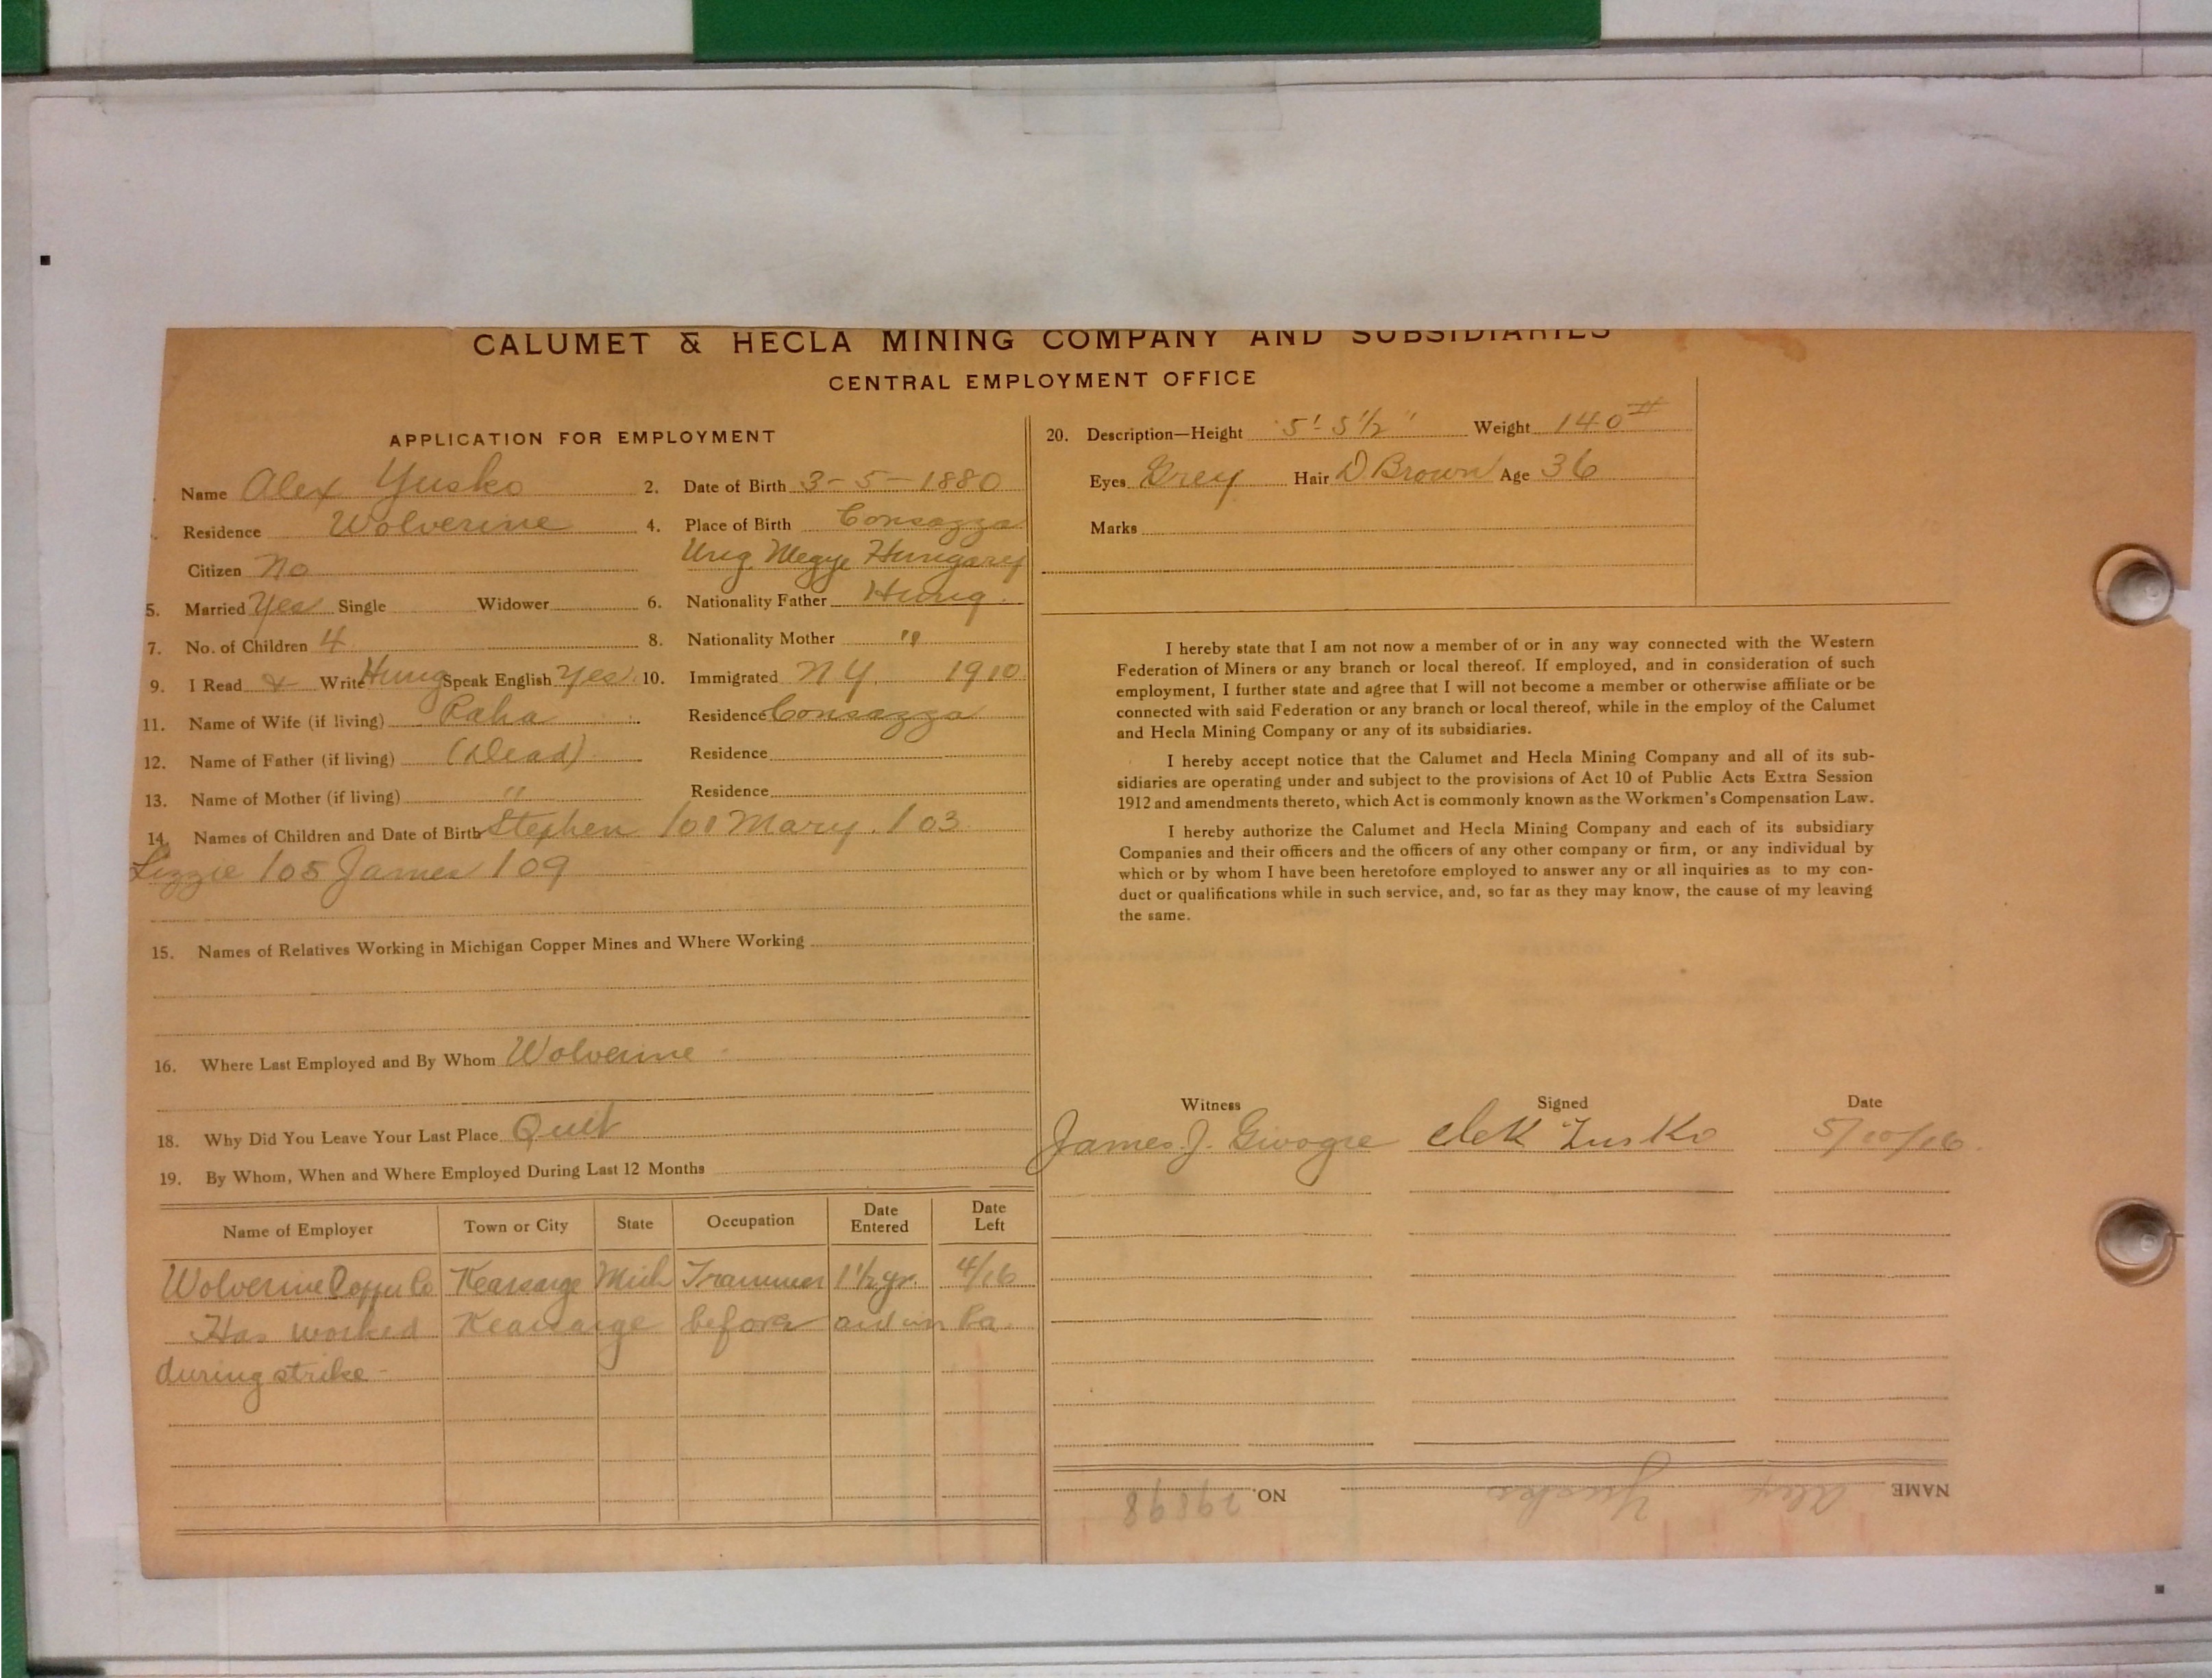 CALUMET & HECLA MINING COMPANY AND SUBSIDIARIES
CENTRAL EMPLOYMENT OFFICE
APPLICATION FOR EMPLOYMENT
Name Alex Yusko 2. Date of Birth 3-5-1880
Residence Wolverine 4. Place of Birth Consazza
Citizen No Ung Megye Hungary
5. Married Yes Single Widower 6. Nationality Father Hung.
7. No. of Children 4 8. Nationality Mother "
9. I Read & Write Hung Speak English Yes. 10. Immigrated N Y. 1910
11. Name of Wife (if living) Raha Residence Consazza
12. Name of Father (if living) (Dead) Residence
13. Name of Mother (if living) " Residence
14. Names of Children and Date of Birth Stephen 101 Mary. 103
Lizzie 105 James 109
15. Names of Relatives Working in Michigan Copper Mines and Where Working
16. Where Last Employed and By Whom Wolverine
18. Why Did You Leave Your Last Place Quit
19. By Whom, When and Where Employed During Last 12 Months
Name of Employer Town or City State Occupation Date Entered Date Left
Wolverine Copper Co Kearsarge Mich Trammer 1 1/2 yr. 4/16
Has worked Kearsarge before and in Pa.
during strike -
20. Description—Height 5' 5 1/2" Weight 140 #
Eyes Grey Hair D. Brown Age 36
Marks
I hereby state that I am not now a member of or in any way connected with the Western
Federation of Miners or any branch or local thereof. If employed, and in consideration of such
employment, I further state and agree that I will not become a member or otherwise affiliate or be
connected with said Federation or any branch or local thereof, while in the employ of the Calumet
and Hecla Mining Company or any of its subsidiaries.
I hereby accept notice that the Calumet and Hecla Mining Company and all of its sub-
sidiaries are operating under and subject to the provisions of Act 10 of Public Acts Extra Session
1912 and amendments thereto, which Act is commonly known as the Workmen's Compensation Law.
I hereby authorize the Calumet and Hecla Mining Company and each of its subsidiary
Companies and their officers and the officers of any other company or firm, or any individual by
which or by whom I have been heretofore employed to answer any or all inquiries as to my con-
duct or qualifications while in such service, and, so far as they may know, the cause of my leaving
the same.
Witness Signed Date
James J. 5/10/16.
NAME Alex Yusko NO. 29898